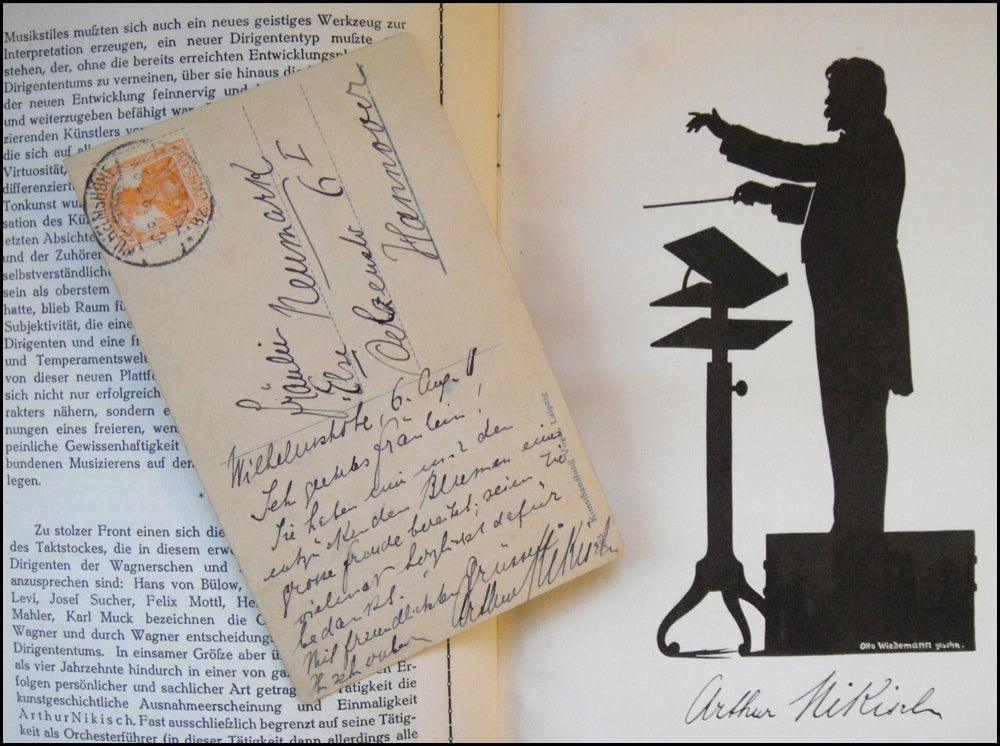 Musikstiles mußten sich auch ein neues geistiges Werkzeug zur
Interpretation erzeugen, ein neuer Dirigententyp mußte
stehen, der, ohne die bereits erreichten
Dirigententums zu verneinen, über sie hinaus
der neuen Entwicklung feinnervig und
und weiterzugeben befähigt war.
zierenden Künstlers
die sich auf
Virtuosität,
differenziert
Tonkunst
sation des
letzten
und der Zuhörer
selbstverständliche
sein als oberstem
hatte, blieb Raum
Subjektivität, die eine
Dirigenten und eine
und Temperamentswelt
von dieser neuen
sich nicht nur erfolgreich
rakters nähern, sondern
nungen eines freieren,
peinliche Gewissenhaftigkeit
bundenen Musizierens auf den
legen.
*
Zu stolzer Front einen sich die
des Taktstockes, die in diesem
Dirigenten der Wagnerschen und
anzusprechen sind: Hans von Bülow,
Levi, Josef Sucher, Felix Mottl,
Mahler, Karl Muck bezeichnen die
Wagner und durch Wagner
Dirigententums. In einsamer Größe aber
als vier Jahrzehnte hindurch in einer von
folgen persönlicher und sachlicher Art Tätigkeit die
kunstgeschichtliche Ausnahmeerscheinung und Einmaligkeit
Arthur Nikisch. Fast ausschließlich begrenzt auf seine Tätig-
keit als Orchesterführer (in dieser Tätigkeit dann allerdings alle
Fräulein Neumark
Else 6 I
Hannover
Wilhelmshöhe, 6. Aug.
Sehr geehrtes Fräulein!
Sie haben mir mit den
entzückenden Blumen eine
grosse Freude bereitet; seien Sie
vielmals herzlichst dafür
bedankt.
Mit freundlichsten Grüssen
Arthur Nikisch
Kunsthandlung Leipzig
Otto Wiedemann
Arthur Nikisch